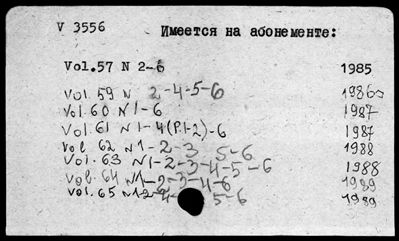 V 3556 Имеется на абонементе:
Vol.57 N 2-6 1985
Vol.59 N 2-4-5-6 1986
Vol.60 N 1-6 1987
Vol.61 N 1-4(P.1-2)-6 1987
Vol. 62 N 1-2-3 5-6 1988
Vol. 63 N 1-2-3-4-5-6 1988
Vol. 64 N 1-2-3-4-6 1989
Vol. 65 N 1-2-4 5-6 1989